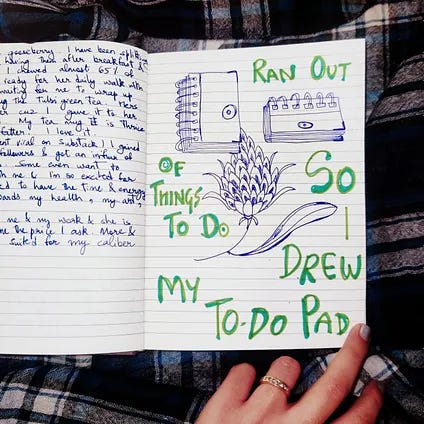 gooseberry. I have been
having this after breakfast
I chewed almost 65% of
ready for her daily walk with
waiting for me to wrap
the Tulsi green Tea. Hers
cuz I gave it to her
my tea mug. It is Thrice
fatter! I love it.
ent viral on Substack! I gained
followers & got an influx of
Some even want to
th me & I'm so excited for
eed to have the time & energy
wards my health, my art,
me & my work & she is
me the price I ask. More &
suited for my caliber
RAN OUT
OF
THINGS
TO DO
SO
I
DREW
MY
TO-DO PAD